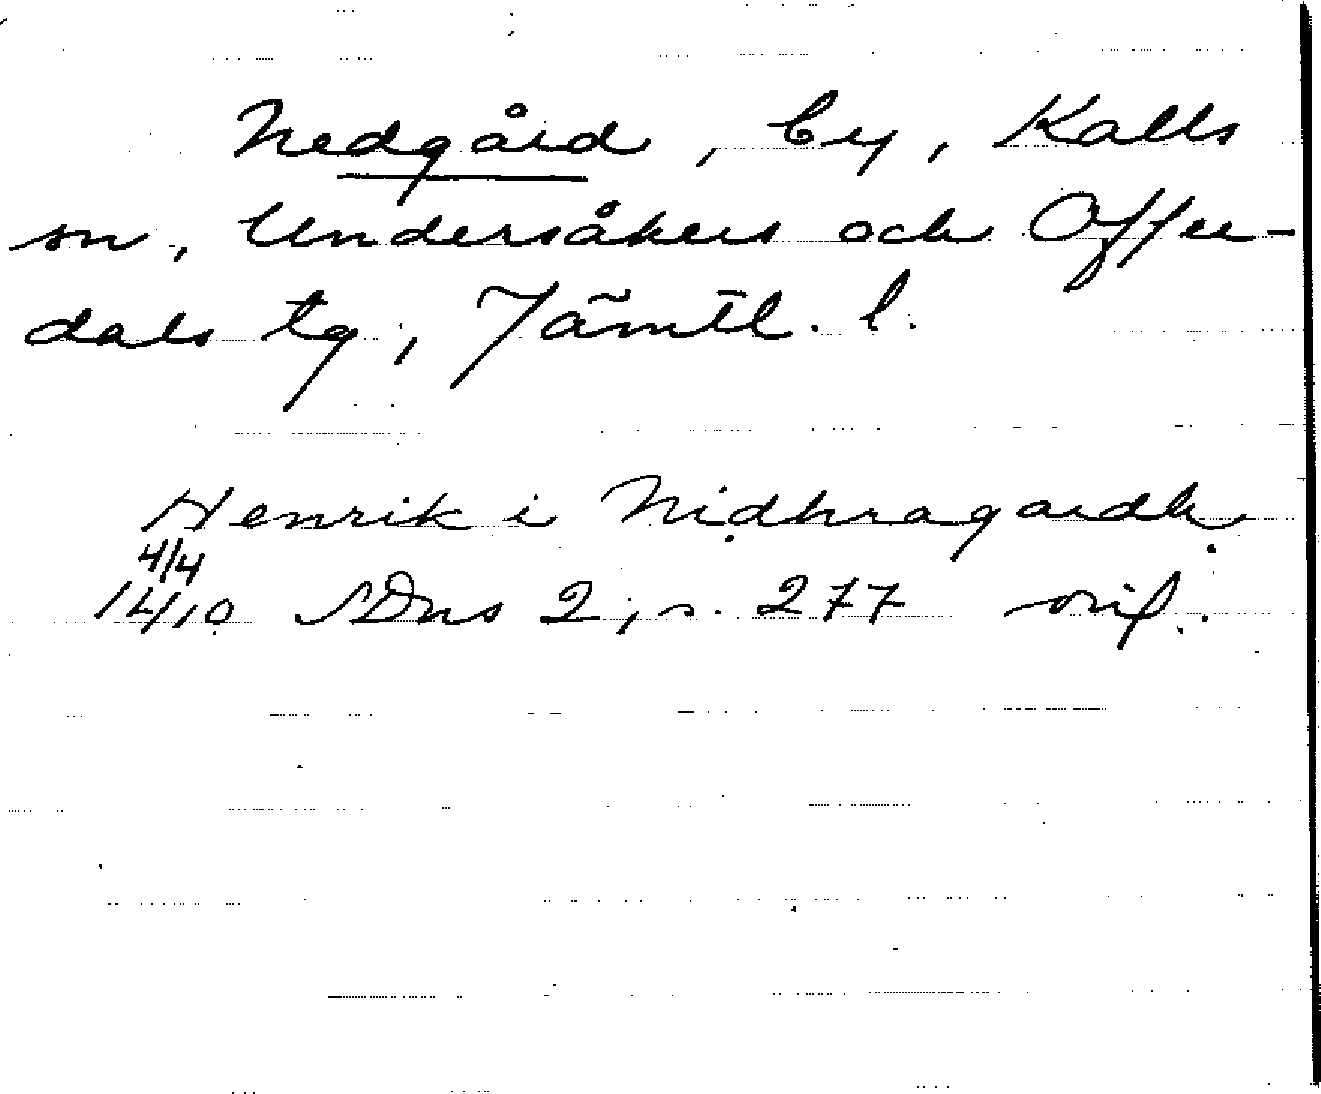 Nedgård, by, Kalls
sn, Undersåkers och Offer-
dals tg, Jämtl. l.
Henrik i Nidhragardh
4/4
1410 SDns 2, s. 277 orig.